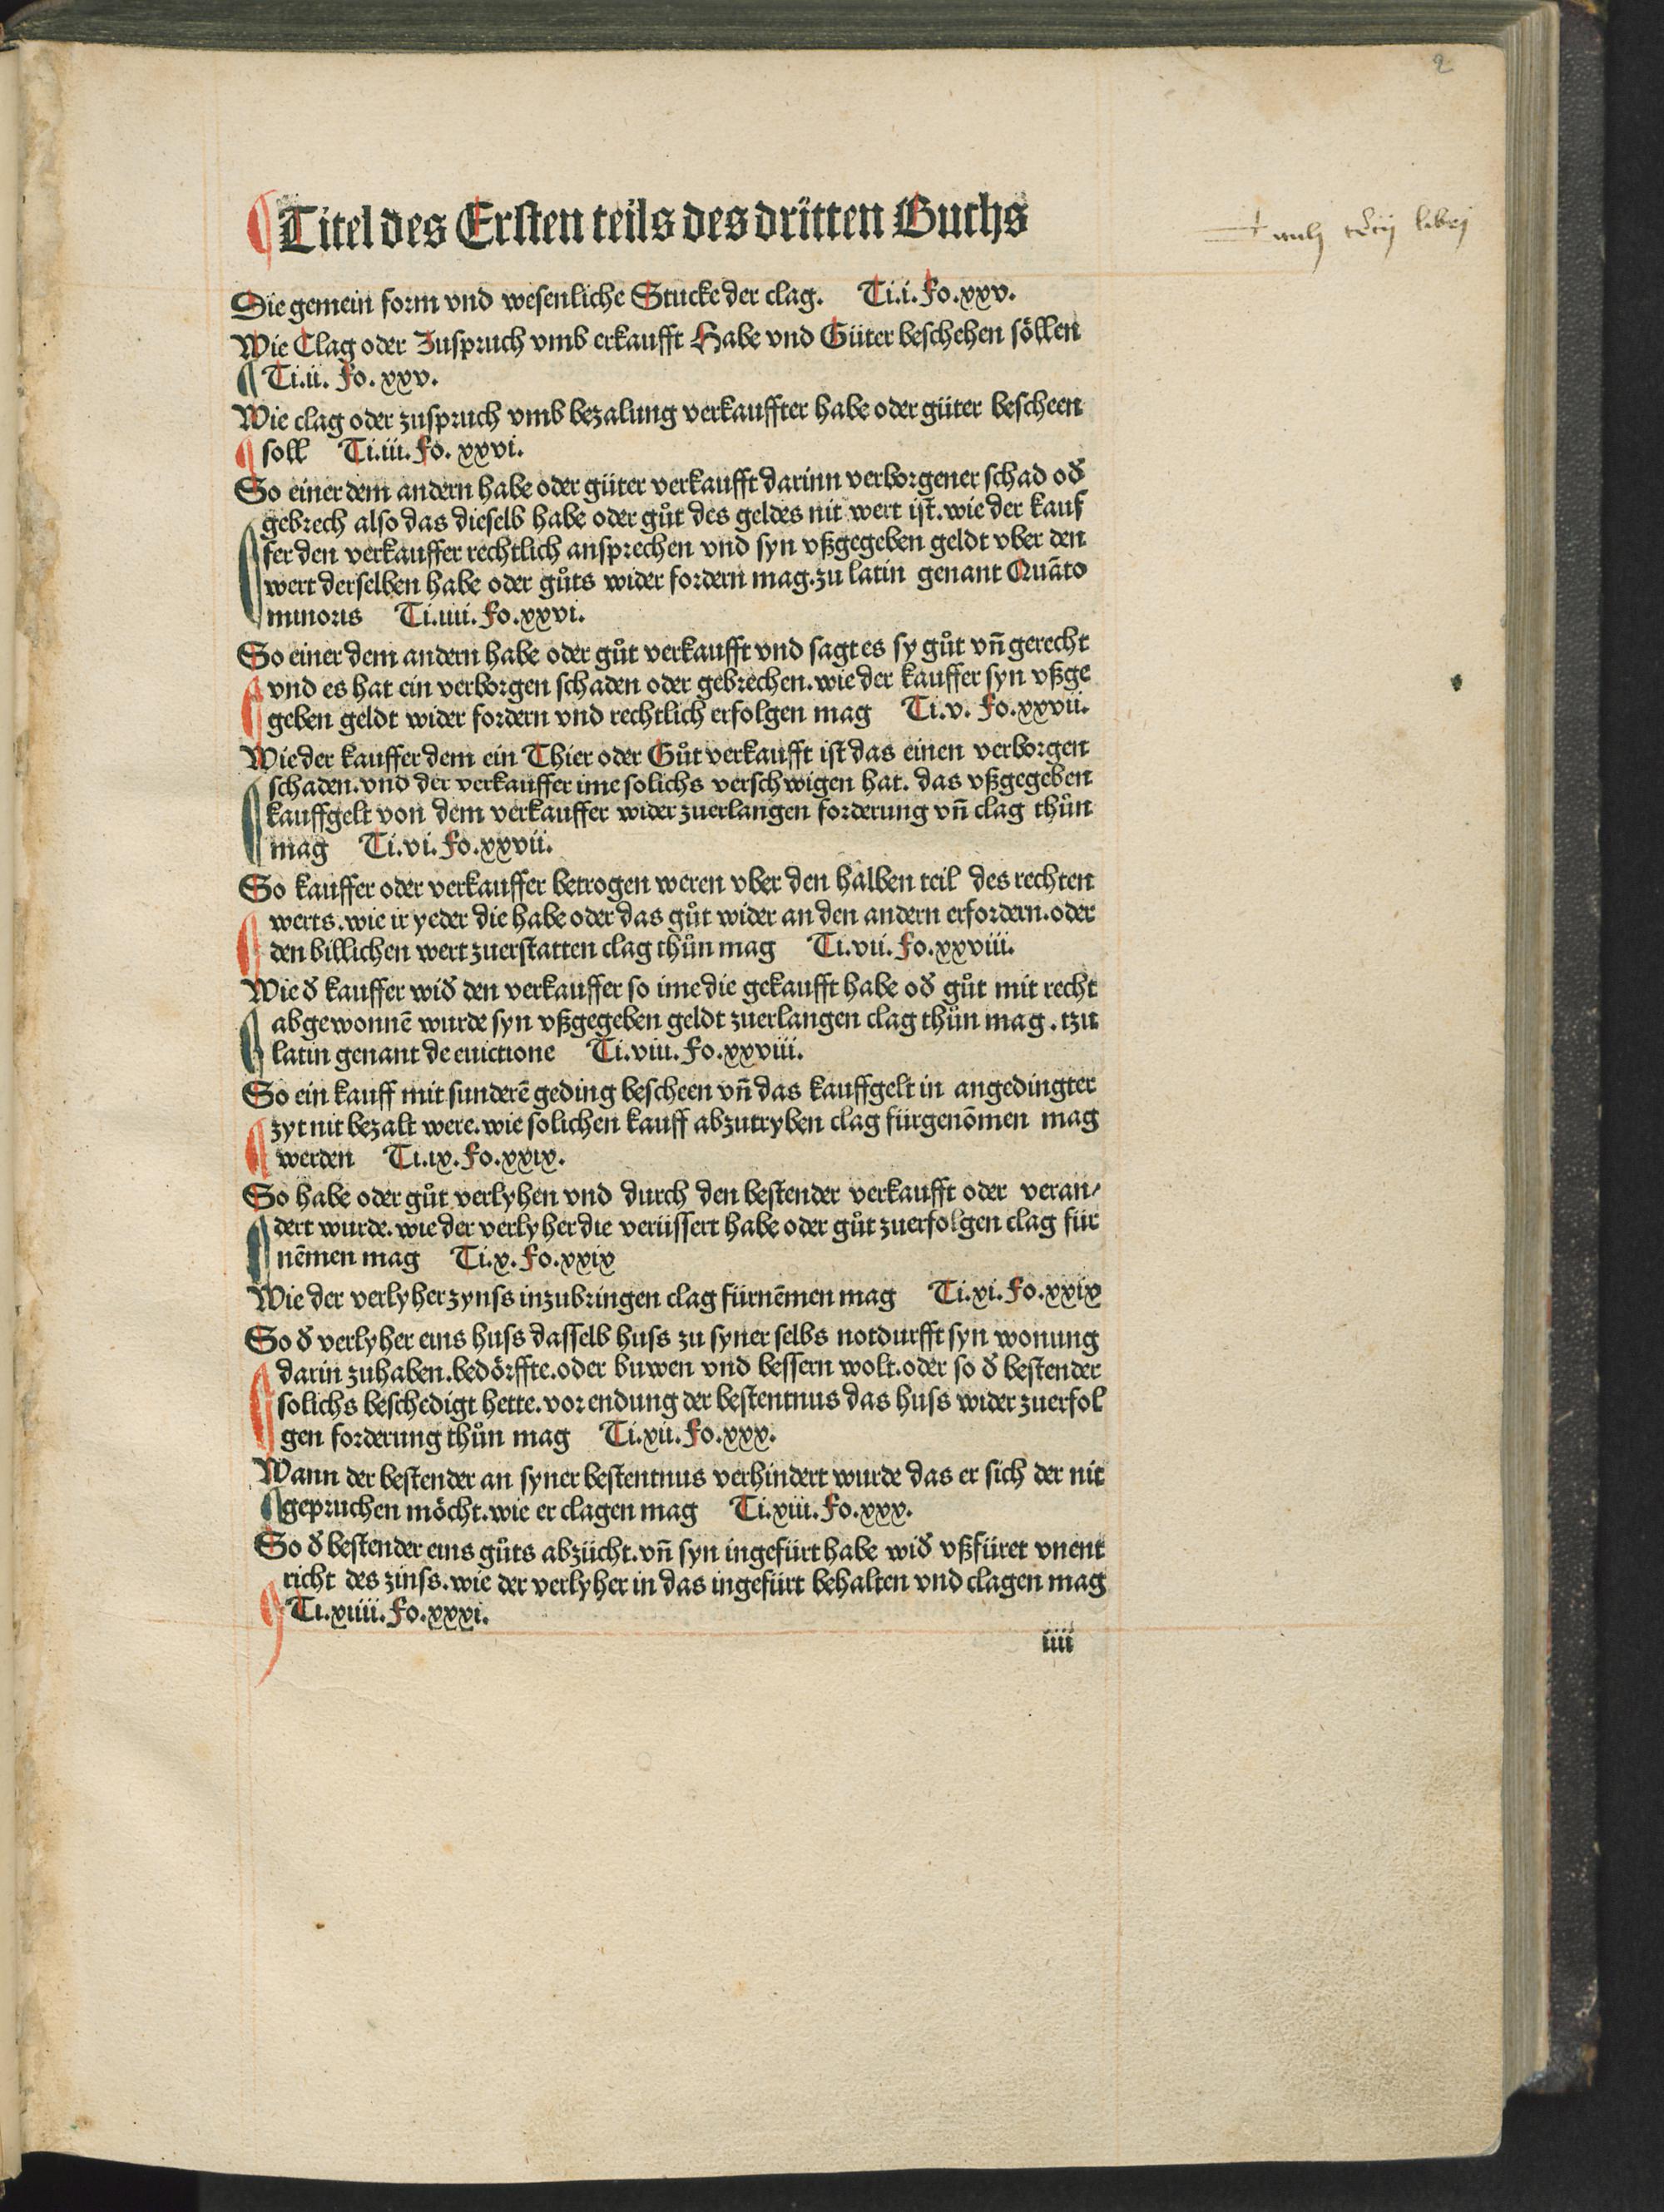 2
¶ Titel des Ersten teils des dritten Buchs
Die gemein form vnd wesenliche Stucke der clag. Ti.i. Fo.xxv.
Wie Clag oder Zuspruch vmb erkaufft Habe vnd Güter beschehen söllen
¶ Ti.ii. Fo. xxv.
Wie clag oder zuspruch vmb bezalung verkauffter habe oder güter bescheen
¶ soll Ti.iii. Fo. xxvi.
So einer dem andern habe oder güter verkaufft darinn verborgener schad oď
gebrech also das dieselb habe oder gůt des geldes nit wert ist. wie der kauf
fer den verkauffer rechtlich ansprechen vnd syn vßgegeben geldt vber den
wert derselben habe oder gůts wider fordern mag. zu latin genant Quāto
minoris Ti.iiii. Fo.xxvi.
So einer dem andern habe oder gůt verkaufft vnd sagt es sy gůt vn̄ gerecht
vnd es hat ein verborgen schaden oder gebrechen. wie der kauffer syn vßge
geben geldt wider fordern vnd rechtlich erfolgen mag Ti.v. Fo.xxvii.
Wie der kauffer dem ein Thier oder Gůt verkaufft ist das einen verborgen
schaden. vnd der verkauffer ime solichs verschwigen hat. das vßgegeben
kauffgelt von dem verkauffer wider zuerlangen forderung vn̄ clag thůn
mag Ti.vi. Fo.xxvii.
So kauffer oder verkauffer betrogen weren vber den halben teil des rechten
werts. wie ir yeder die habe oder das gůt wider an den andern erfordern. oder
den billichen wert zuerstatten clag thůn mag Ti.vii. Fo.xxviii.
Wie ď kauffer wiď den verkauffer so ime die gekaufft habe oď gůt mit recht
abgewonnē wurde syn vßgegeben geldt zuerlangen clag thůn mag. tzu
latin genant de euictione Ti.viii. Fo.xxviii.
So ein kauff mit sunderē geding bescheen vn̄ das kauffgelt in angedingter
zyt nit bezalt were. wie solichen kauff abzutryben clag fürgenōmen mag
werden Ti.ix. Fo.xxix.
So habe oder gůt verlyhen vnd durch den bestender verkaufft oder veran/
dert wurde. wie der verlyher die verüssert habe oder gůt zuerfolgen clag für
nēmen mag Ti.x. Fo.xxix
Wie der verlyher zynss inzubringen clag fürnēmen mag Ti.xi. Fo.xxix
So ď verlyher eins huss dasselb huss zu syner selbs notdurfft syn wonung
darin zuhaben. bedörffte. oder buwen vnd bessern wolt. oder so ď bestender
solichs beschedigt hette. vor endung der bestentnus das huss wider zuerfol
gen forderung thůn mag Ti.xii. Fo.xxx.
Wann der bestender an syner bestentnus verhindert wurde das er sich der nit
gepruchen möcht. wie er clagen mag Ti.xiii. Fo.xxx.
So ď bestender eins gůts abzücht. vn̄ syn ingefürt habe wiď vßfüret vnent
richt des zinss. wie der verlyher in das ingefürt behalten vnd clagen mag
Ti.xiiii. Fo.xxxi.
iiii